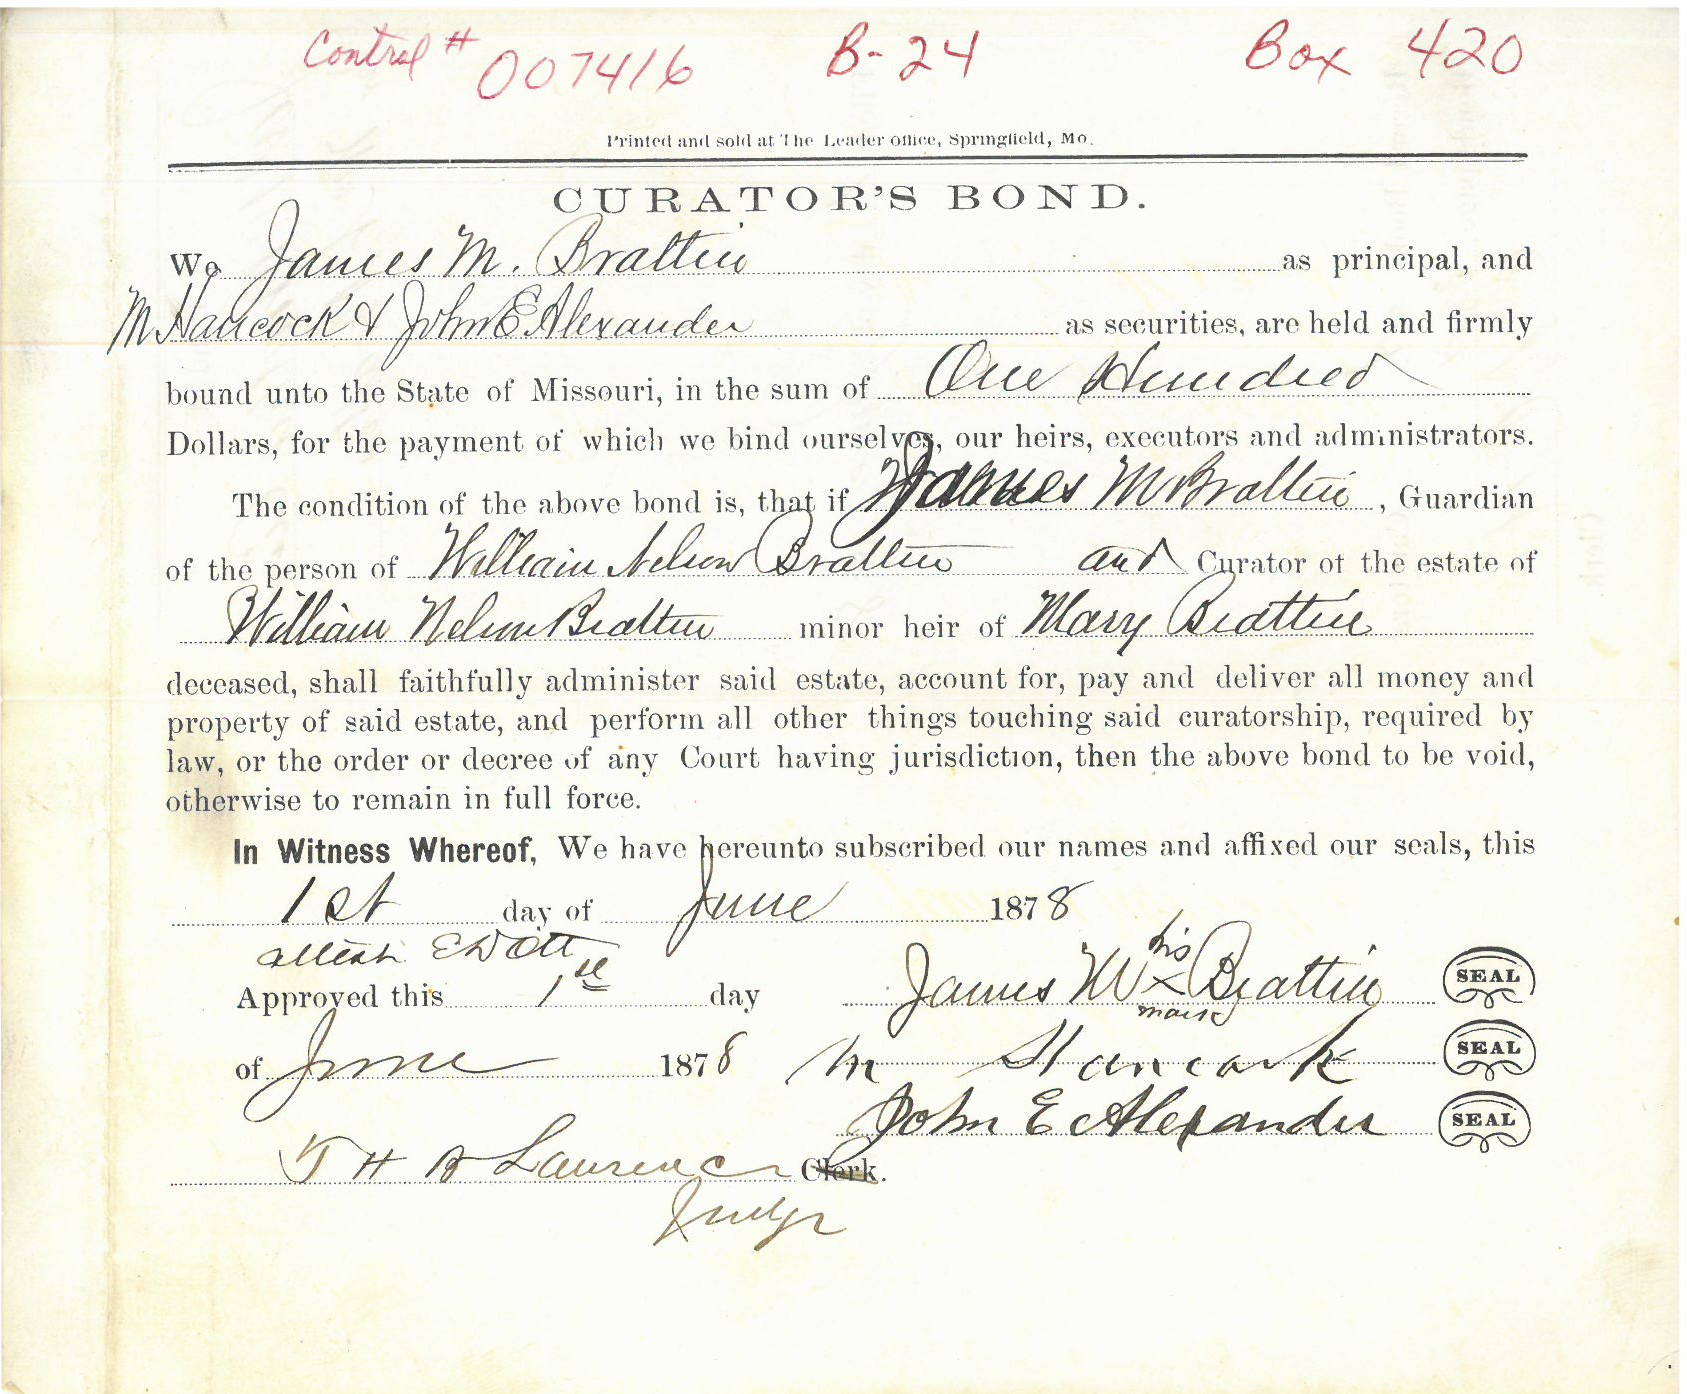 Control # 007416 B-24 Box 420
Printed and sold at The Leader office, Springfield, Mo.
CURATOR'S BOND.
We James M. Brattin as principal, and
M Hancock & John E Alexander as securities, are held and firmly
bound unto the State of Missouri, in the sum of One Hundred
Dollars, for the payment of which we bind ourselves, our heirs, executors and administrators.
The condition of the above bond is, that if James M Brattin, Guardian
of the person of William Nelson Brattin and Curator of the estate of
William Nelson Brattin minor heir of Mary Brattin
deceased, shall faithfully administer said estate, account for, pay and deliver all money and
property of said estate, and perform all other things touching said curatorship, required by
law, or the order or decree of any Court having jurisdiction, then the above bond to be void,
otherwise to remain in full force.
In Witness Whereof, We have hereunto subscribed our names and affixed our seals, this
1st day of June 1878
attest E D Ott
his
Approved this 1st day James M x Brattin SEAL
mark
of June 1878 M Hancock SEAL
John E Alexander SEAL
T H B Lawrence Clerk.
Judge